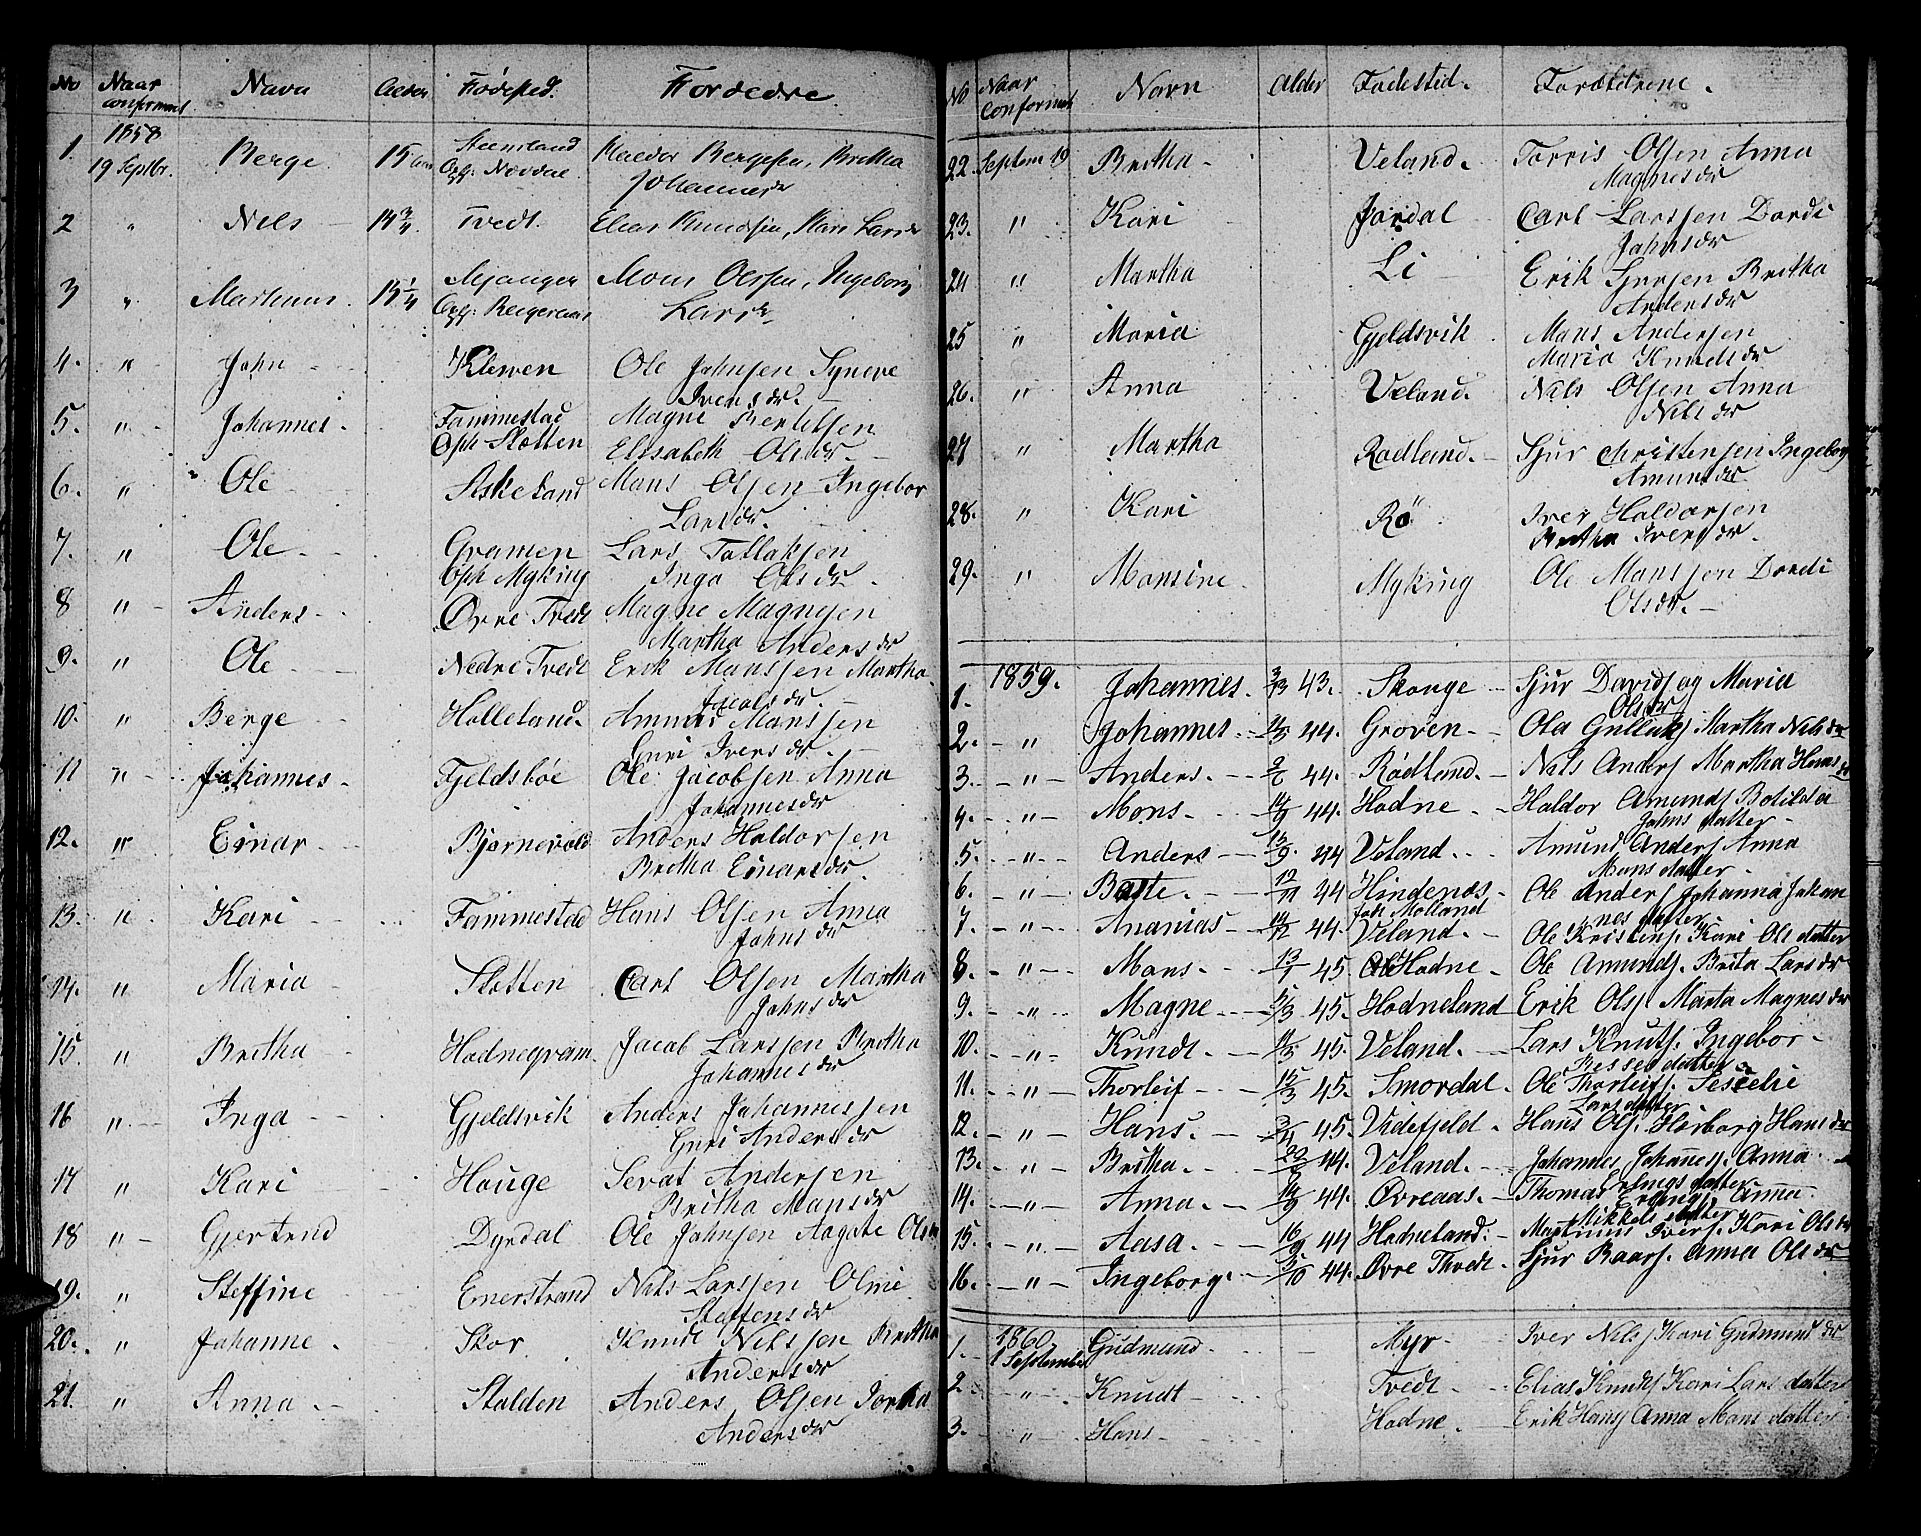 No Naar confirmeret Navn Alder Fødested. Forældre.
1. 1858 19 Septbr. Berge 15 Haldor Bergesen, Britha
Johannesdr
2 " Nels 14 3/4 Tvedt. Elias Knudsen, Kari Larsdr
3 " Mathias. 15 1/4 Mjanger Mons Olsen, Ingeborg
Larsdr
4. " John Kleiven Ole Johnsen Syneve
Iversdr.
5. " Johannes. Fammestad Magne Bertelsen
Oph Slotten Elisabeth Olsdr.
6. " Ole Askeland Mans Olsen Ingebor
Larsdr.
7. " Ole Gramen Lars Tollaksen
Oph Myking Inga Olsdr.
8 " Anders Øvre Tvedt Magne Magnesen
Martha Andersdr
9. " Ole Nedre Tvedt Erik Manssen Martha
Jacobsdr.
10. " Berge Holleland. Amund Manssen
Guri Iversdr.
11 " Johannes. Fjeldsbøe Ole Jacobsen Anna
Johannesdr
12. " Einar Bjørnevold Anders Haldorsen
Britha Einarsdr.
13. " Kari Fammestad Hans Olsen Anna
Johnsdr
14. " Maria Slotten Carl Olsen Martha
Johnsdr
15 " Britha Hodnegram. Jacob Larssen Britha
Johannesdr
16 " Inga Gjeldsvik Anders Johannessen
Guri Andersdr
17 " Kari Houge Sevat Andersen
Britha Mansdr
18 " Gjertrud Dyrdal Ole Johnsen Aagate Olsdr
19. " Steffine Enerstrand Nils Larssen Oline
Staffensdr
20. " Johanne. Skor. Knudt Nilssen Britha
Andersdr
21. " Anna. Stalden Anders Olsen
Andersdr
No Naar Confirmeret Navn Alder Fødested. Forældrene.
22. Septem 19 Britha Veland. Torris Olsen Anna
Magnesdr
23. " Kari Jordal Carl Larssen Dordi
Johnsdr
24 " Martha Li Erik Sjursen Britha
Andersdr
25 " Maria Gjeldsvik Mans Andersen
Maria Knudtsdr
26. " Anna Veland. Nils Olsen Anna
Nilsdr
27 " Martha Rødland. Sjur Christensen Ingeborg
Amundsdr
28. " Kari Rø Iver Haldorsen
Britha Iversdr.
29. " Mansine Myking Ole Manssen Dordi
Olsdr.
1. 1859. Johannes. 43. Skouge Sjur Davids og Maria
Olsdr
2. " Johannes. 44. Groven Ola Gulluks Martha Nilsdr
3. " Anders. 44. Rødland. Nils Anders Martha Hansdr
4. " Mons. 44. Hodne Haldor Amunds Botilda
Johnsdatter
5. " Anders 44 Veland. Amund Anders Anna
Mansdatter.
6. " 44 Hindenæs. Ole Anders Johanna Johan
nesdatter
7. " Ananias 44. Veland. Ole Kristens. Kari Olsdatter
8. " Mons. 13/1 45. Hodne Ole Amunds. Brita Larsdr
9. " Magne 45. Hodneland Erik Ols Marta Magnesdr
10. " Knudt. 45. Veland. Lars Knuts. Ingebor
datter
11. " Thorleif 15/3 45. Smørdal Ole Thorleifs.
Larsdatter
12. " Hans. 45. Videfjeld. Hans Ols. Herborg Hansdr
13. " Britha. 44. Veland. Johannes Johannes. Anna
Erlingsdatter
14. " Anna 44. Øvreaas. Thomas Erlings Anna
Mikkelsdatter
15. " Aasa. 16/9 44 Hodneland. Martinus Ivers. Kari Olsdr
16. " Ingeborg. 44. Øvre Tvedt. Sjur Baars. Anna Olsdr
1. 1860, 1 September Gudmund Myr Iver Nils Kari Gudmundsdr
2 " Knudt Tvedt Elias Knuts Kari Larsdatter
3. " Hans Hodne. Erik Hans Anna Mansdatter